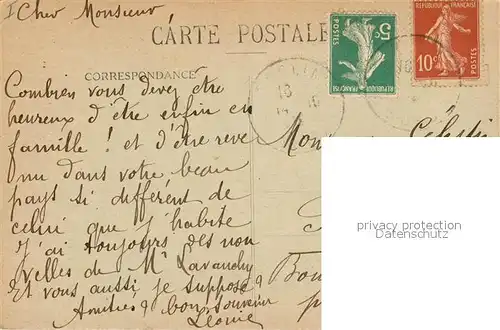 Cher Monsieur
CARTE POSTALE
CORRESPONDANCE
Combien vous devez être
heureux d'être enfin en
famille ! et d'être reve
nu dans votre beau
pays si différent de
celui que j'habite
J'ai toujours des nou
velles de Mr Lavanchy
Et vous aussi je suppose ?
Amitiés & bon souvenir
Léonie
REPUBLIQUE FRANÇAISE
5c
POSTES
REPUBLIQUE FRANÇAISE
10c
POSTES
Mon
Célestin
Bon
privacy protection
Datenschutz